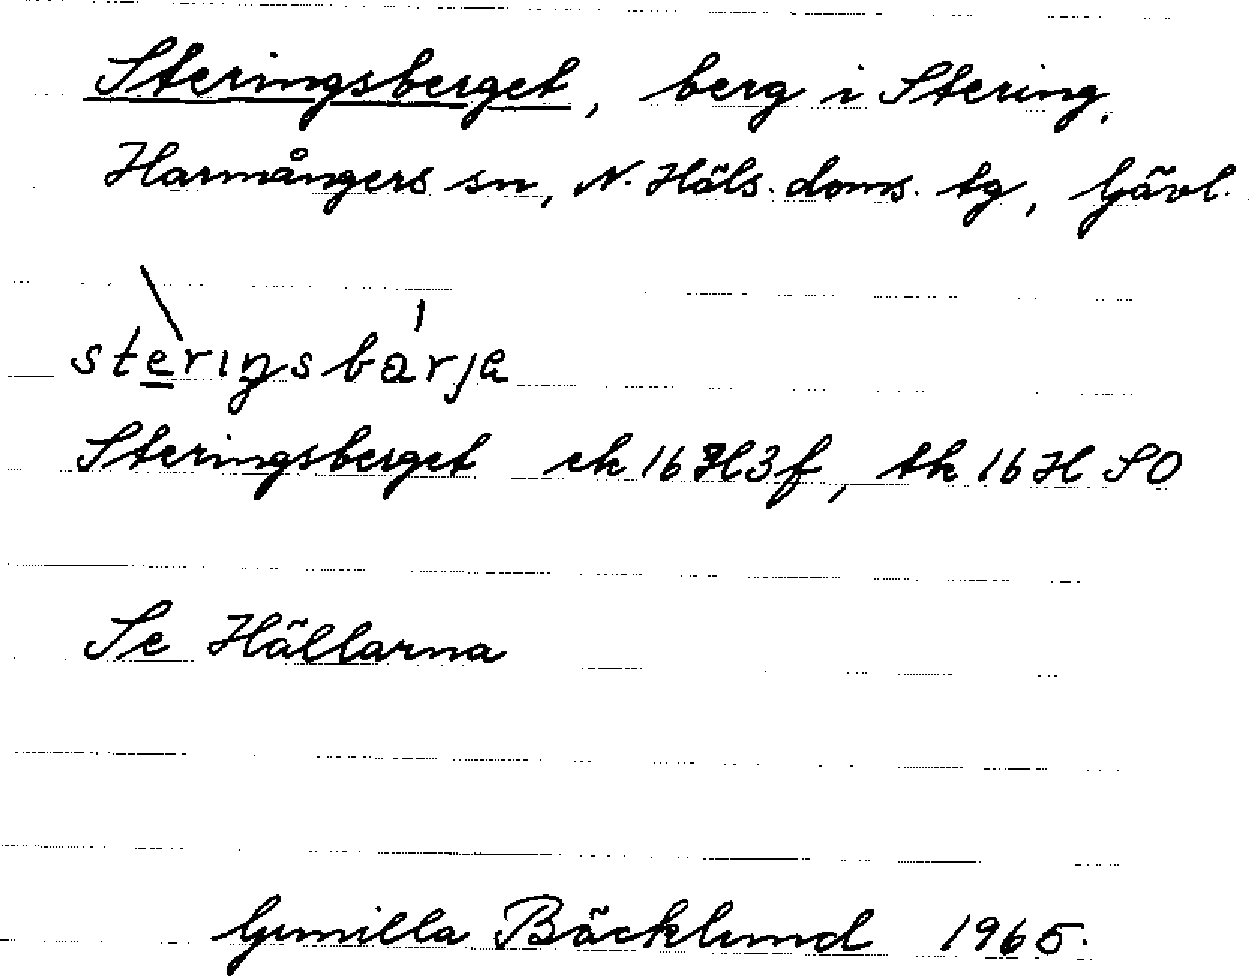 Steringsberget, berg i Stering,
Harmångers sn, N. Häls. doms. tg, Gävl.
steriŋsbarja
Steringsberget ek 16H3f, tk 16H SO
Se Hällarna
Gunilla Bäcklund 1965.